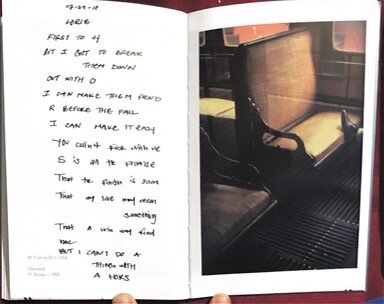 LORSE
FIRST TO H
BUT I GOT TO BREAK
THEM DOWN
OUT WITH O
I CAN MAKE THEM
R BEFORE THE FALL
I CAN MAKE IT EASY
You didn't with me
S is all the promise
That the finish is soon
That my love may mean
something
That a win may find
BUT I CAN'T DO A
THING WITH
A HORS